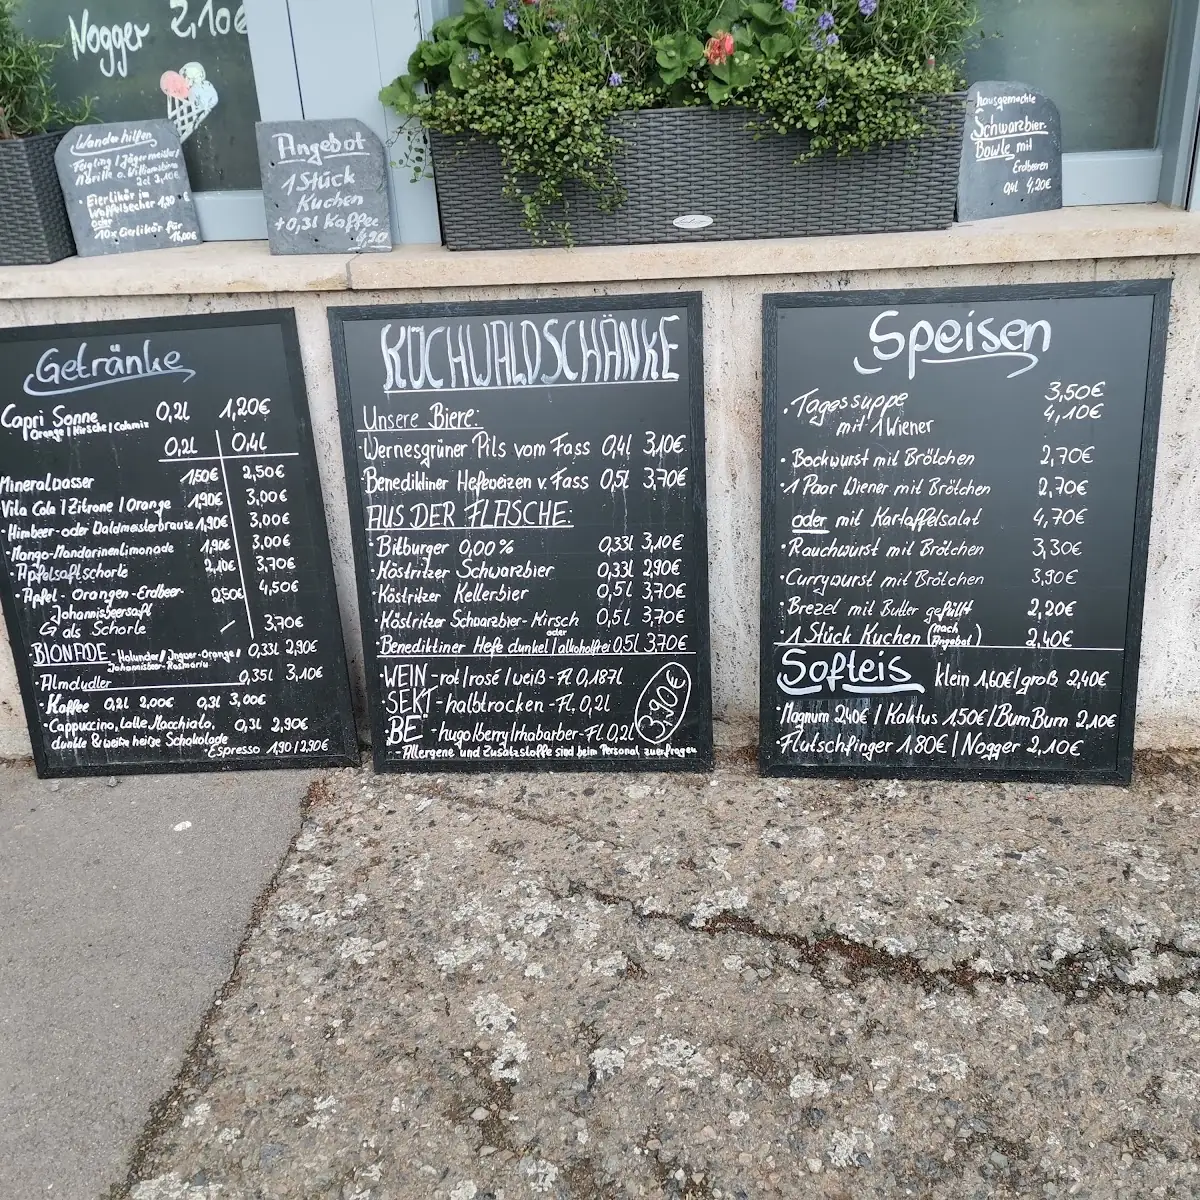 Nogger 2,10€
Wanderhilfen
Feigling / Jägermeister /
Marille o. Williamsbirne
2cl 2,10€
• Eierlikör im
Waffelbecher 1,90€
oder
10x Eierlikör für
16,00€
Angebot
1 Stück
Kuchen
+ 0,3l Kaffee
4,90
hausgemachte
Schwarzbier-
Bowle mit
Erdbeeren
0,4l 4,20€
Getränke
Capri Sonne 0,2l 1,20€
Orange / Kirsche /
0,2l 0,4l
Mineralwasser 1,50€ 2,50€
Vita Cola / Zitrone / Orange 1,90€ 3,00€
• Himbeer- oder Waldmeisterbrause 1,90€ 3,00€
• Mango-Mandarinenlimonade 1,90€ 3,00€
• Apfelsaftschorle 2,10€ 3,70€
• Apfel- Orangen- Erdbeer- 2,50€ 4,50€
Johannisbeersaft
↳ als Schorle / 3,70€
BIONADE - Holunder / Ingwer-Orange / 0,33l 2,90€
Johannisbeer-Rosmarin
• Almdudler 0,35l 3,10€
• Kaffee 0,2l 2,00€ 0,3l 3,00€
• Cappuccino, Latte Macchiato, 0,3l 2,90€
dunkle & weiße heiße Schokolade
- Espresso 1,90 / 2,90€
KÖCHWALDSCHÄNKE
Unsere Biere:
Wernesgrüner Pils vom Fass 0,4l 3,10€
Benediktiner Hefeweizen v. Fass 0,5l 3,70€
AUS DER FLASCHE:
• Bitburger 0,00% 0,33l 3,10€
• Köstritzer Schwarzbier 0,33l 2,90€
• Köstritzer Kellerbier 0,5l 3,70€
• Köstritzer Schwarzbier-Kirsch 0,5l 3,70€
oder
• Benediktiner Hefe dunkel / alkoholfrei 0,5l 3,70€
• WEIN - rot / rosé / weiß - Fl 0,187l
• SEKT - halbtrocken - Fl. 0,2l
• BE - hugo / berry / rhabarber - Fl 0,2l
3,90€
- Allergene und Zusatzstoffe sind beim Personal zu erfragen
Speisen
• Tagessuppe 3,50€
mit 1 Wiener 4,10€
• Bockwurst mit Brötchen 2,70€
• 1 Paar Wiener mit Brötchen 2,70€
oder mit Kartoffelsalat 4,70€
• Rauchwurst mit Brötchen 3,30€
• Currywurst mit Brötchen 3,90€
• Brezel mit Butter gefüllt 2,20€
• 1 Stück Kuchen (nach Angebot) 2,40€
Softeis klein 1,60€ / groß 2,40€
• Magnum 2,40€ / Kaktus 1,50€ / BumBum 2,10€
• Flutschfinger 1,80€ / Nogger 2,10€